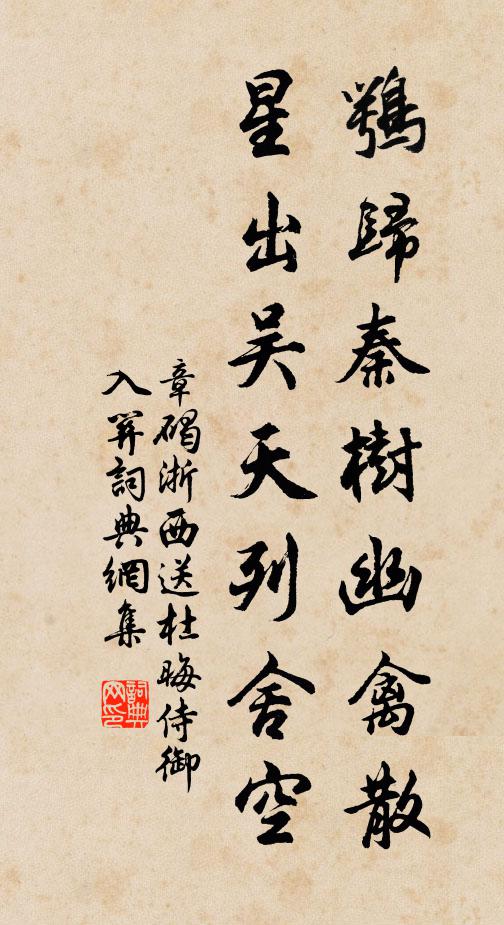 鶚歸秦樹幽禽散
星出吴天列舍空
章碣浙西送杜晦侍御
入關詞典網集
詞典
网印